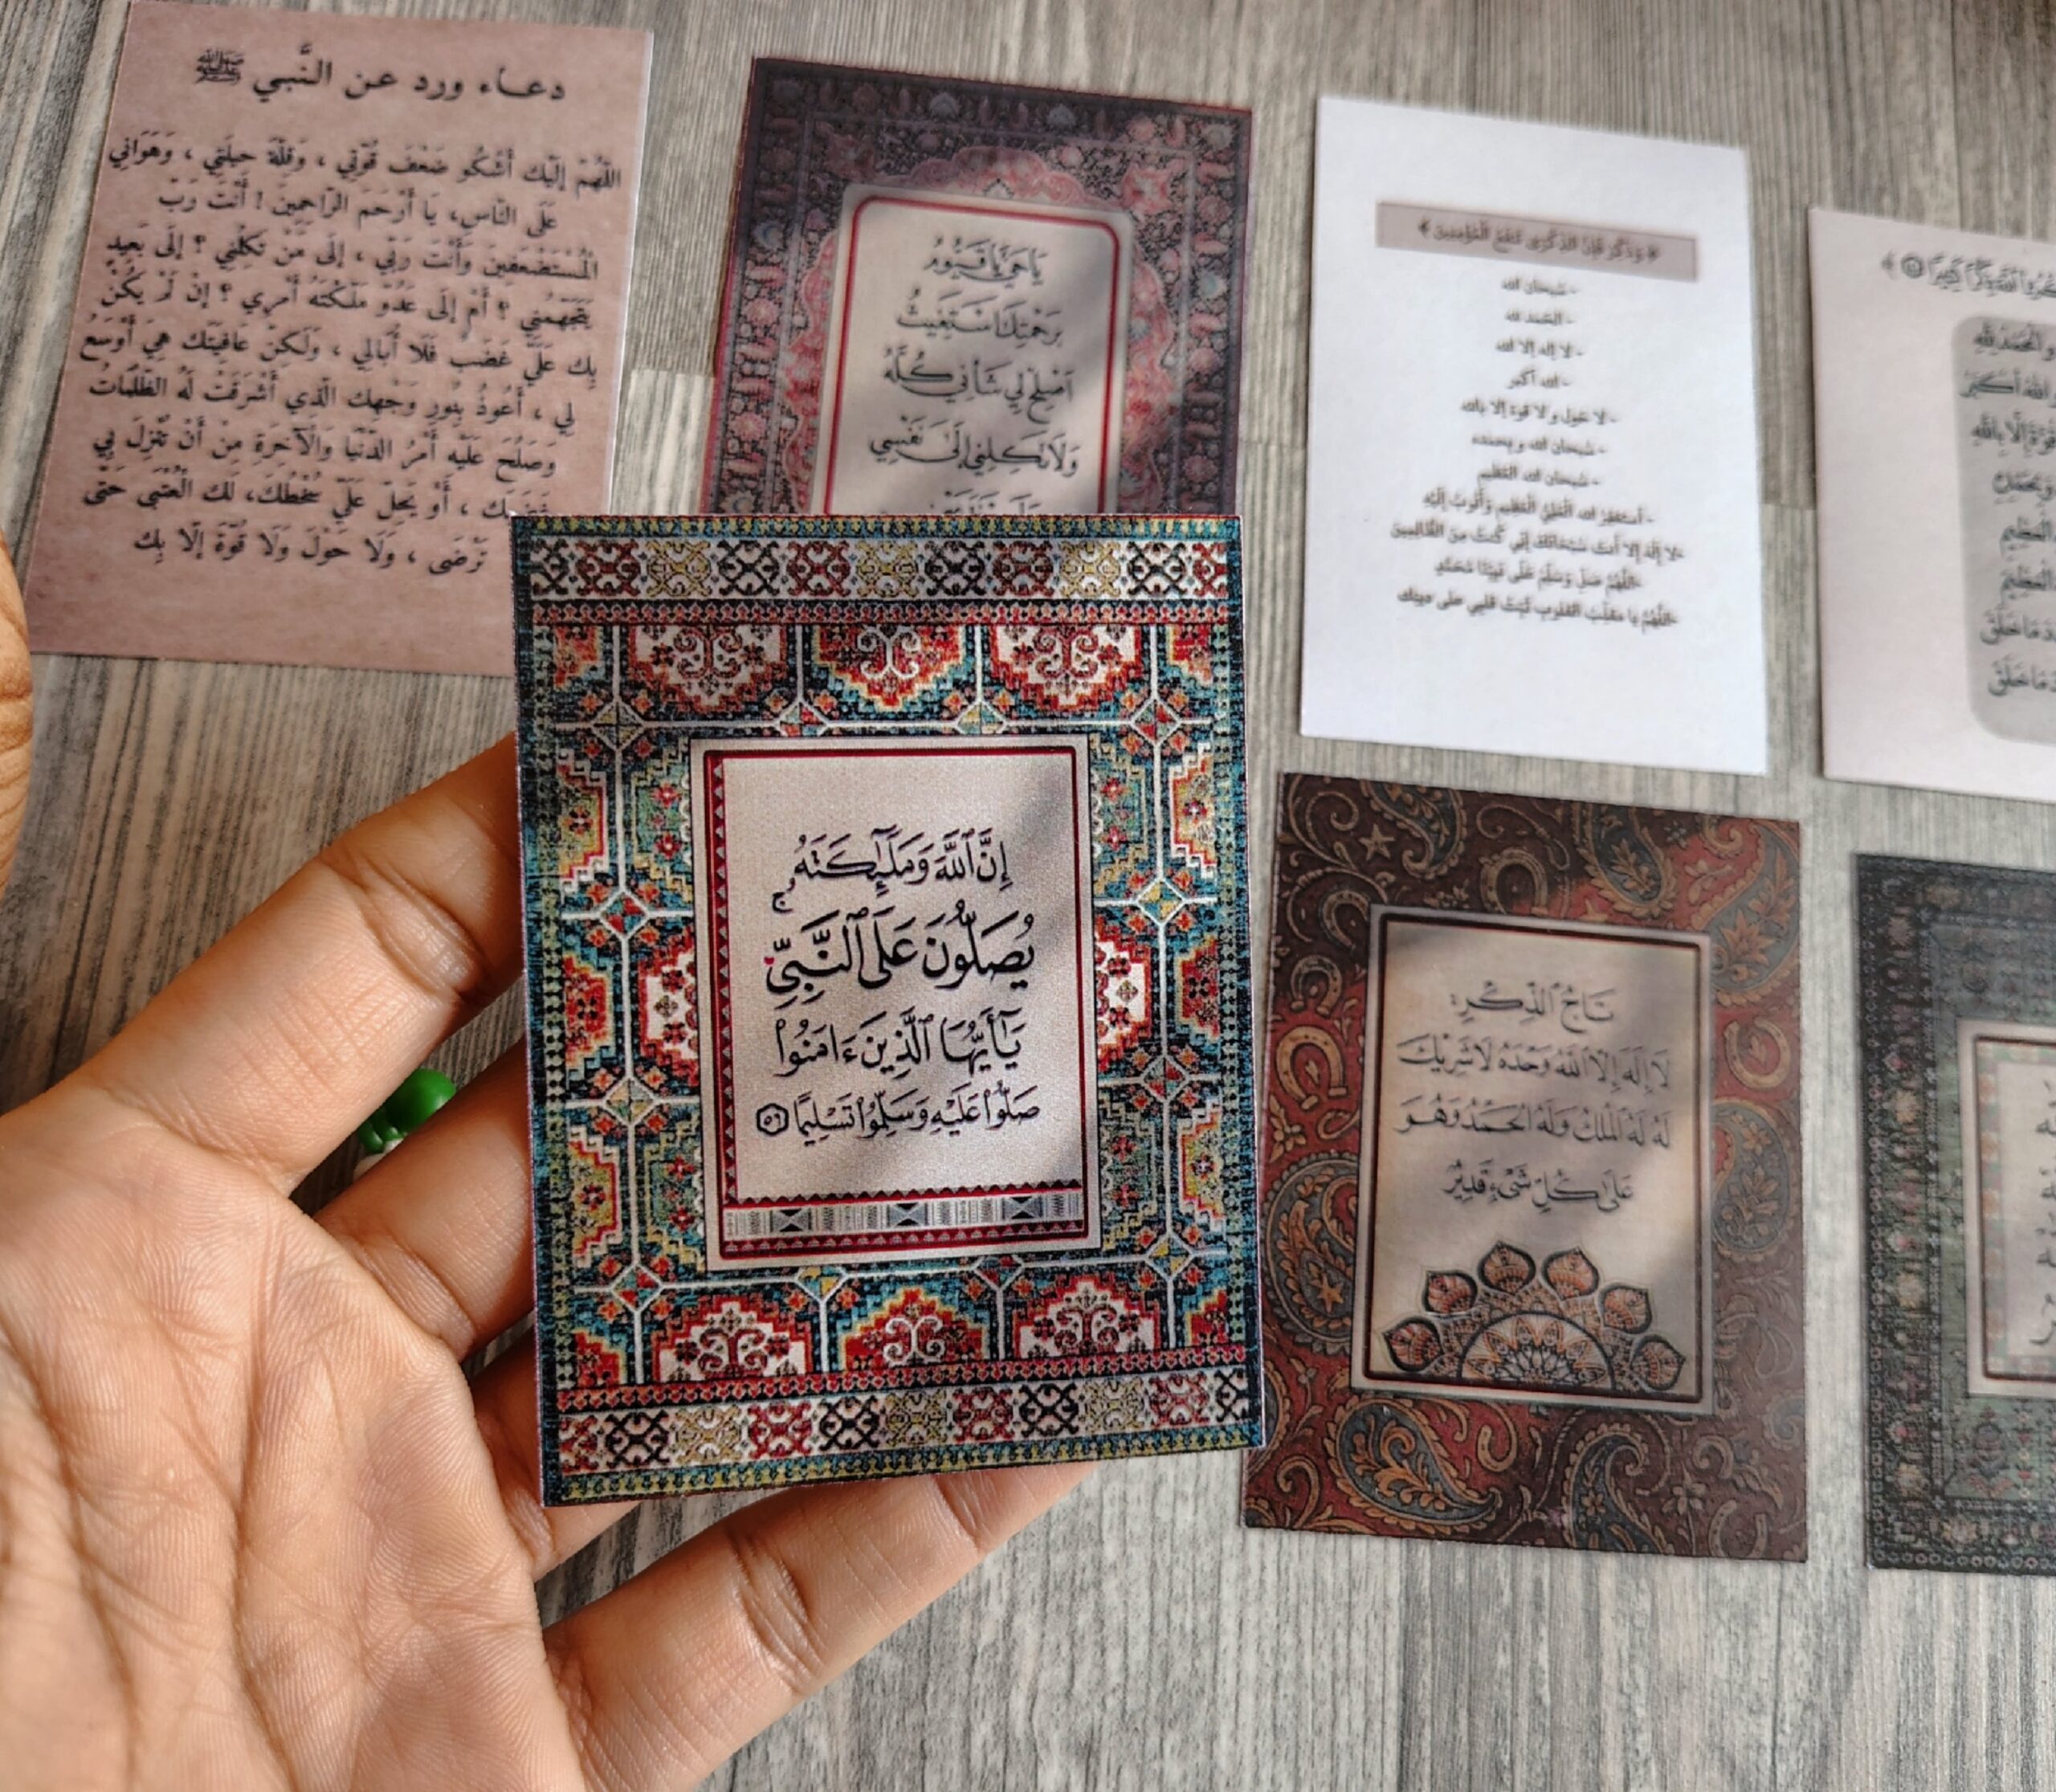 دعاء ورد عن النَّبي ﷺ
اللّهُمّ إِلَيْك أَشْكُو ضَعْفَ قُوّتِي ، وَقِلّةَ حِيلَتِي ، وَهَوَانِي
عَلَى النّاسِ، يَا أَرْحَمَ الرّاحِمِينَ ! أَنْتَ رَبّ
الْمُسْتَضْعَفِينَ وَأَنْتَ رَبّي ، إلَى مَنْ تَكِلُنِي ؟ إلَى بَعِيدٍ
يَتَجَهّمُنِي ؟ أَمْ إلَى عَدُوّ مَلّكْتَهُ أَمْرِي ؟ إنْ لَمْ يَكُنْ
بِك عَلَيّ غَضَب فَلَا أُبَالِي ، وَلَكِنّ عَافِيَتَك هِيَ أَوْسَعُ
لِي ، أَعُوذُ بِنُورِ وَجْهِك الّذِي أَشْرَقَتْ لَهُ الظّلُمَاتُ
وَصَلُحَ عَلَيْهِ أَمْرُ الدّنْيَا وَالْآخِرَةِ مِنْ أَنْ تُنْزِلَ بِي
غَضَبَك ، أَوْ يَحِلّ عَلَيّ سُخْطُكَ، لَك الْعُتْبَى حَتّى
تَرْضَى ، وَلَا حَوْلَ وَلَا قُوّةَ إلّا بِك
يَا حَيُّ يَا قَيُّومُ
بِرَحْمَتِكَ اسْتَغِيثُ
اَصْلِحْ لِي شَأْنِي كُلَّهُ
وَلَا تَكِلْنِي إِلَىٰ نَفْسِي
﴿ وَذَكِّرْ فَإِنَّ الذِّكْرَى تَنفَعُ الْمُؤْمِنِينَ ﴾
- سُبحان الله
- الحَمد لله
- لا إله إلا الله
- الله أكبر
- لا حَول ولا قوة إلا بالله
- سُبحان الله وبحمده
- سُبحان الله العَظيم
- أستغفِرُ الله العَلِيّ العَظِيم وَأَتُوبُ إِلَيْه
-لا إِلَهَ إِلا أَنتَ سُبْحَانَكَ إِنِّي كُنتُ مِنَ الظَّالِمِينَ
-اللَّهُمَّ صَلِّ وَسَلِّم عَلَى نَبِيِّنَا مُحَمَّدٍ
-اللَّهُمَّ يا مقلّب القلوب ثَبِّت قلبي على دينك
والحَمْدُ لِلَّهِ
والله أَكبَرُ
قوَةَ إلَّا بِاللَّهِ
وَبِحَمْدِهِ
العظيم
العظيم
مَا خَلَقَ
مَا خَلَقَ
إِنَّ ٱللَّهَ وَمَلَٰٓئِكَتَهُۥ
يُصَلُّونَ عَلَى ٱلنَّبِىِّ ۚ
يَٰٓأَيُّهَا ٱلَّذِينَ ءَامَنُوا۟
صَلُّوا۟ عَلَيْهِ وَسَلِّمُوا۟ تَسْلِيمًا ٥٦
تَاجُ ٱلذِّكْرِ:
لَا إِلَهَ إِلَّا ٱللَّهُ وَحْدَهُ لَا شَرِيْكَ
لَهُ لَهُ المُلْكُ وَلَهُ الحَمْدُ وَهُوَ
عَلَىٰ كُلِّ شَىْءٍ قَدِيرٌ